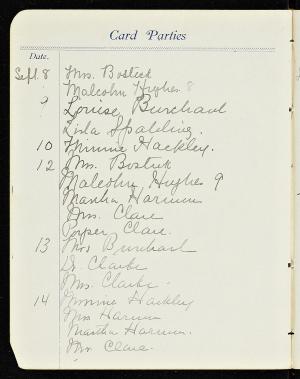 Card Parties
Date.
Sept. 8 Mrs. Bostick
Malcohn Hughes 8
9 Louise Burchard
Lila Spalding.
10 Minnie Hackley.
12 Mrs. Bostick
Malcohn Hughes 9
Martha Harmon
Mrs. Clare
Clare.
13 Mrs Burchard
Dr. Clarke
Mrs. Clarke.
14 Minnie Hackley
Mrs Harmon
Martha Harmon.
Mrs. Clare.